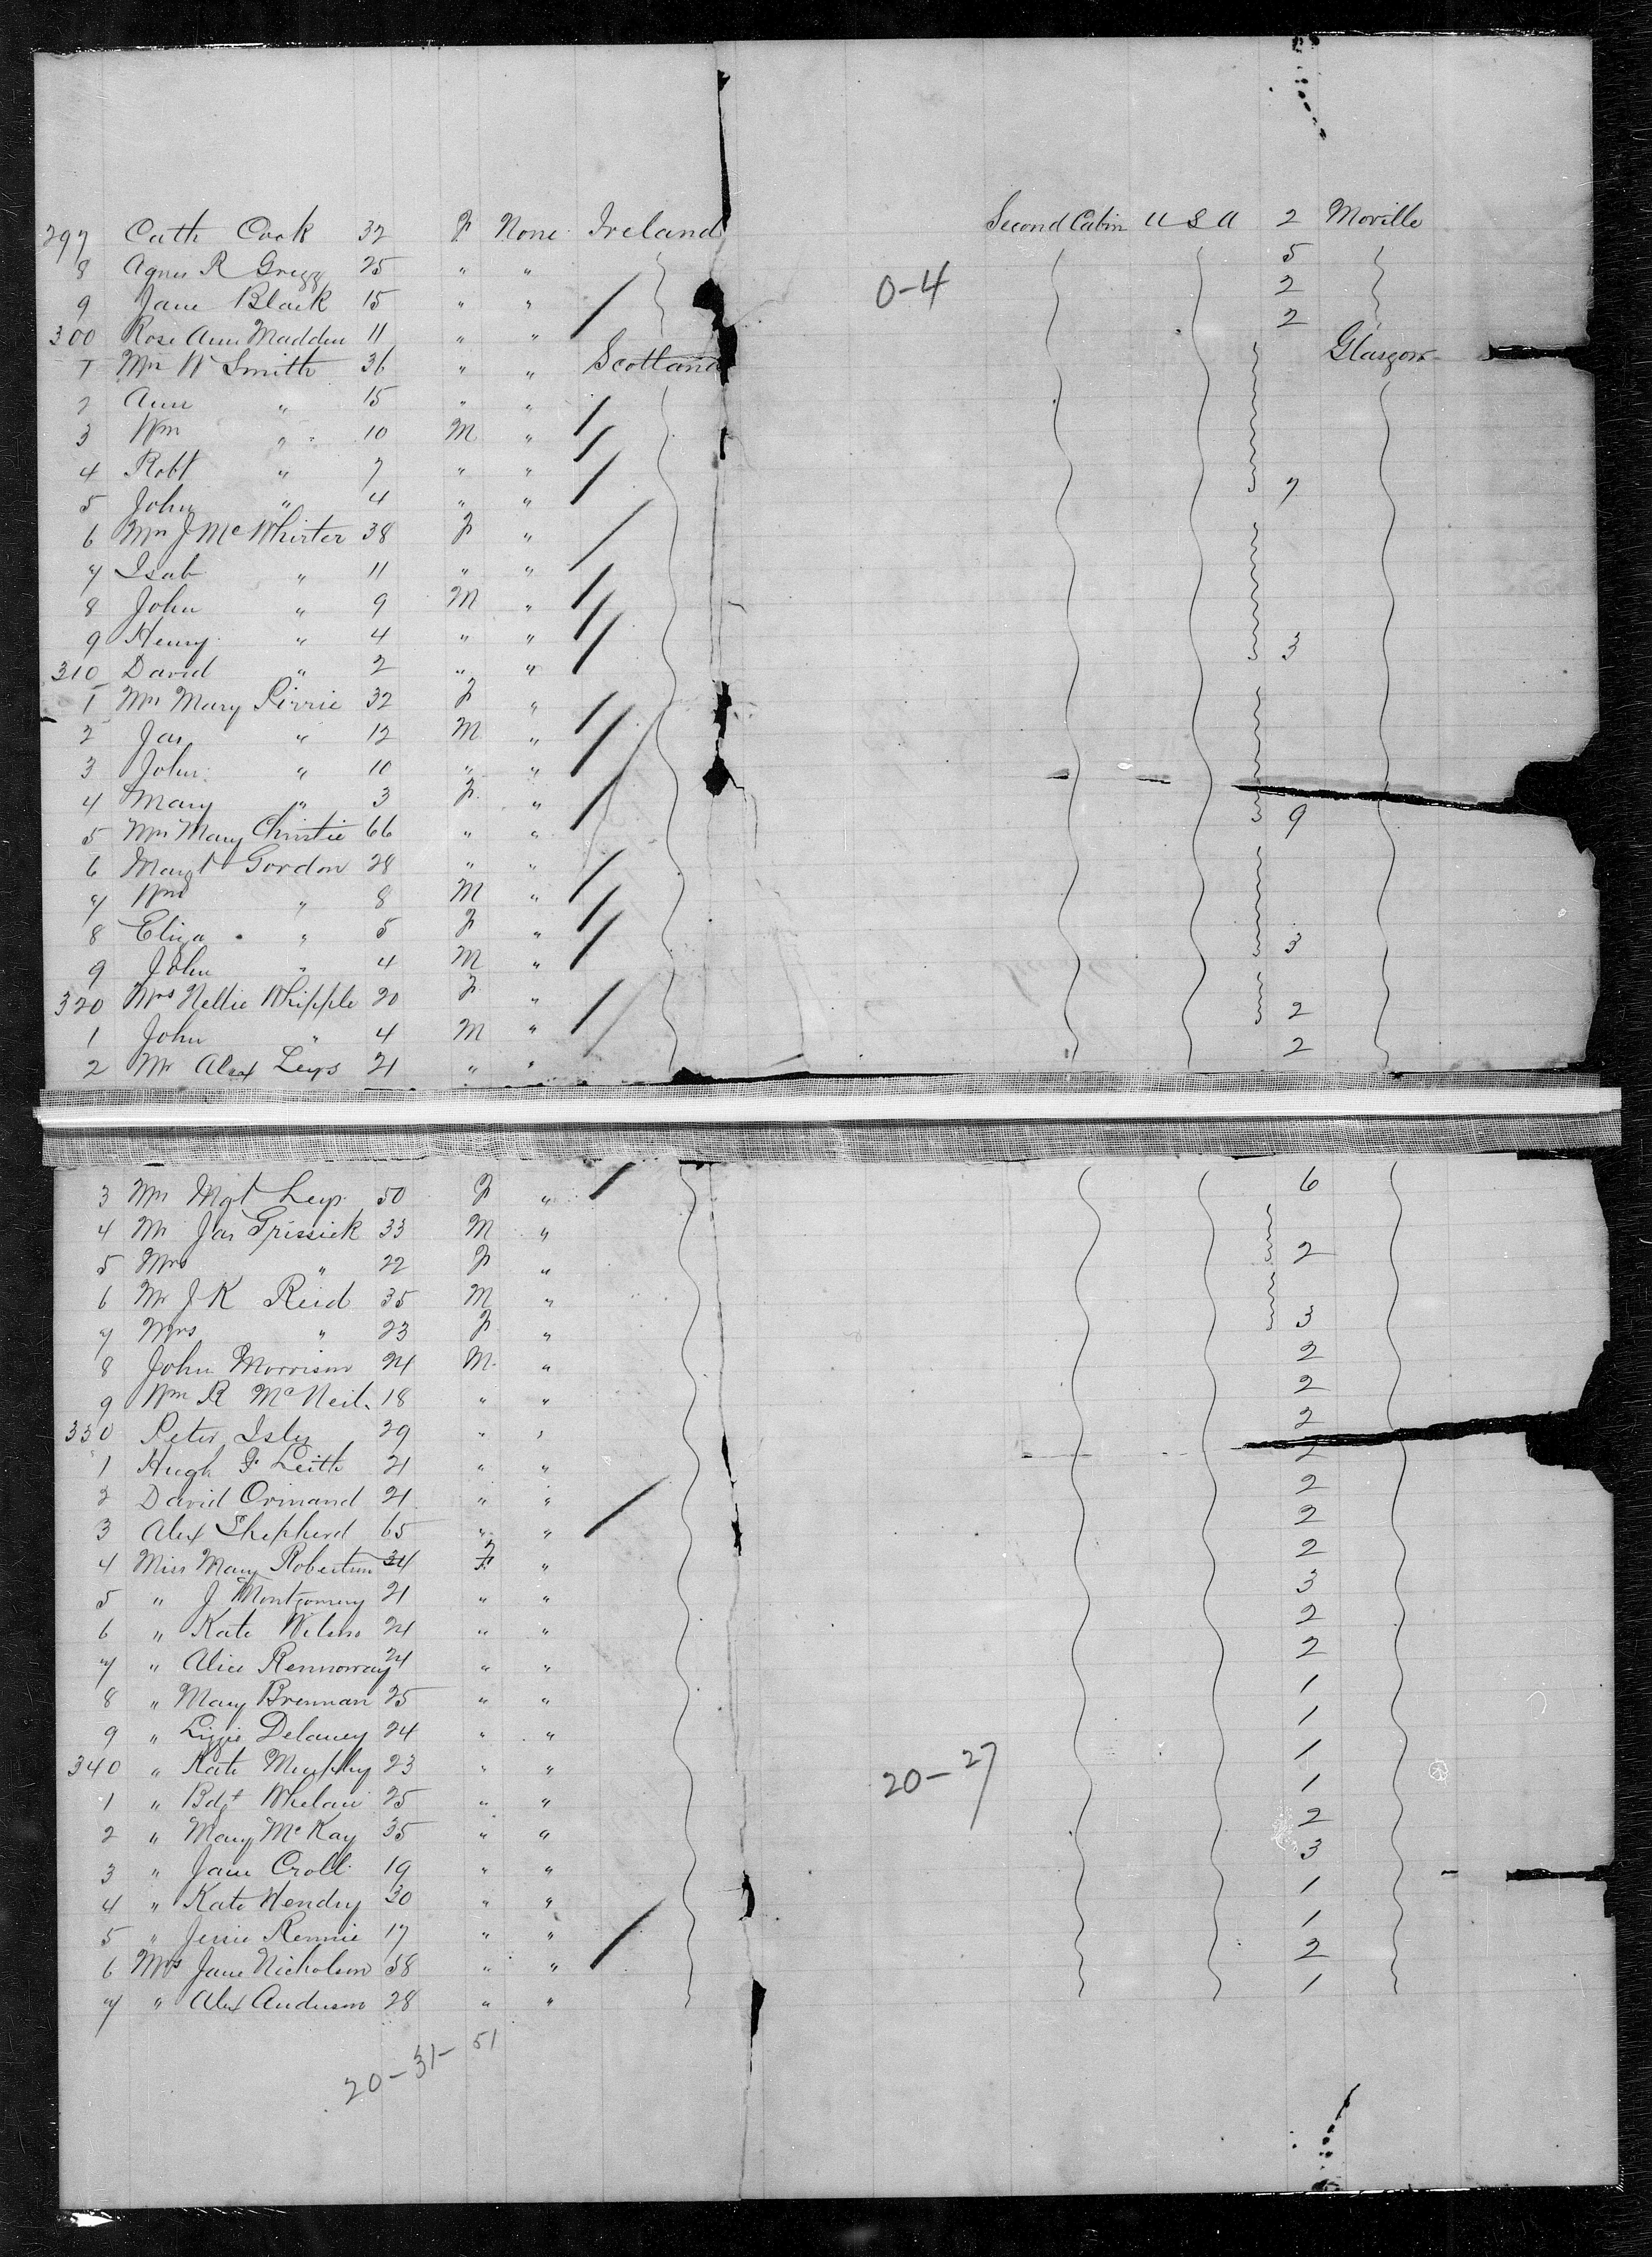 297 Cath Cook 32 F None Ireland Second Cabin U S A 2 Moville
8 Agnes R Gregg 25 " " 5
9 Jane Black 15 " " 0-4 2
300 Rose Ann Madden 11 " " 2
1 Mrs W Smith 36 " " Scotland Glasgow
2 Ann " 15 " "
3 Wm " 10 M "
4 Robt " 7 " "
5 John " 4 " " 7
6 Mrs J McWhirter 38 F "
7 Isab " 11 " "
8 John " 9 M "
9 Henry " 4 " "
310 David " 2 " " 3
1 Mrs Mary Pirrie 32 F "
2 Jas " 12 M "
3 John " 10 " "
4 Mary " 3 F "
5 Mrs Mary Christie 66 " " 9
6 Margt Gordon 28 " "
7 Wm " 8 M "
8 Eliza " 5 F "
9 John " 4 M " 3
320 Mrs Nellie Whipple 20 F "
1 John " 4 M " 2
2 Mr Alex Leys 21 " " 2
3 Mrs Mgt Leys 50 F " 6
4 Mr Jas Grissick 33 M "
5 Mrs " 22 F " 2
6 Mr J K Reid 35 M "
7 Mrs " 23 F " 3
8 John Morrison 24 M " 2
9 Wm R McNeil 18 " " 2
330 Peter Isley 29 " " 2
1 Hugh F Leith 21 " " 2
2 David Ormand 21 " " 2
3 Alex Shepherd 65 " " 2
4 Miss Mary Robertson 34 F " 2
5 " J Montgomery 21 " " 3
6 " Kate Wilson 24 " " 2
7 " Alice Rennoway 24 " " 2
8 " Mary Brennan 25 " " 1
9 " Lizzie Delaney 24 " " 1
340 " Kate Murphy 23 " " 20-27 1
1 " Bdgt Whelan 25 " " 1
2 " Mary McKay 35 " " 2
3 " Jane Croll 19 " " 3
4 " Kate Hendry 30 " " 1
5 " Jessie Rennie 17 " " 1
6 Mrs Jane Nicholson 58 " " 2
7 " Alex Anderson 28 " " 1
20-31-51